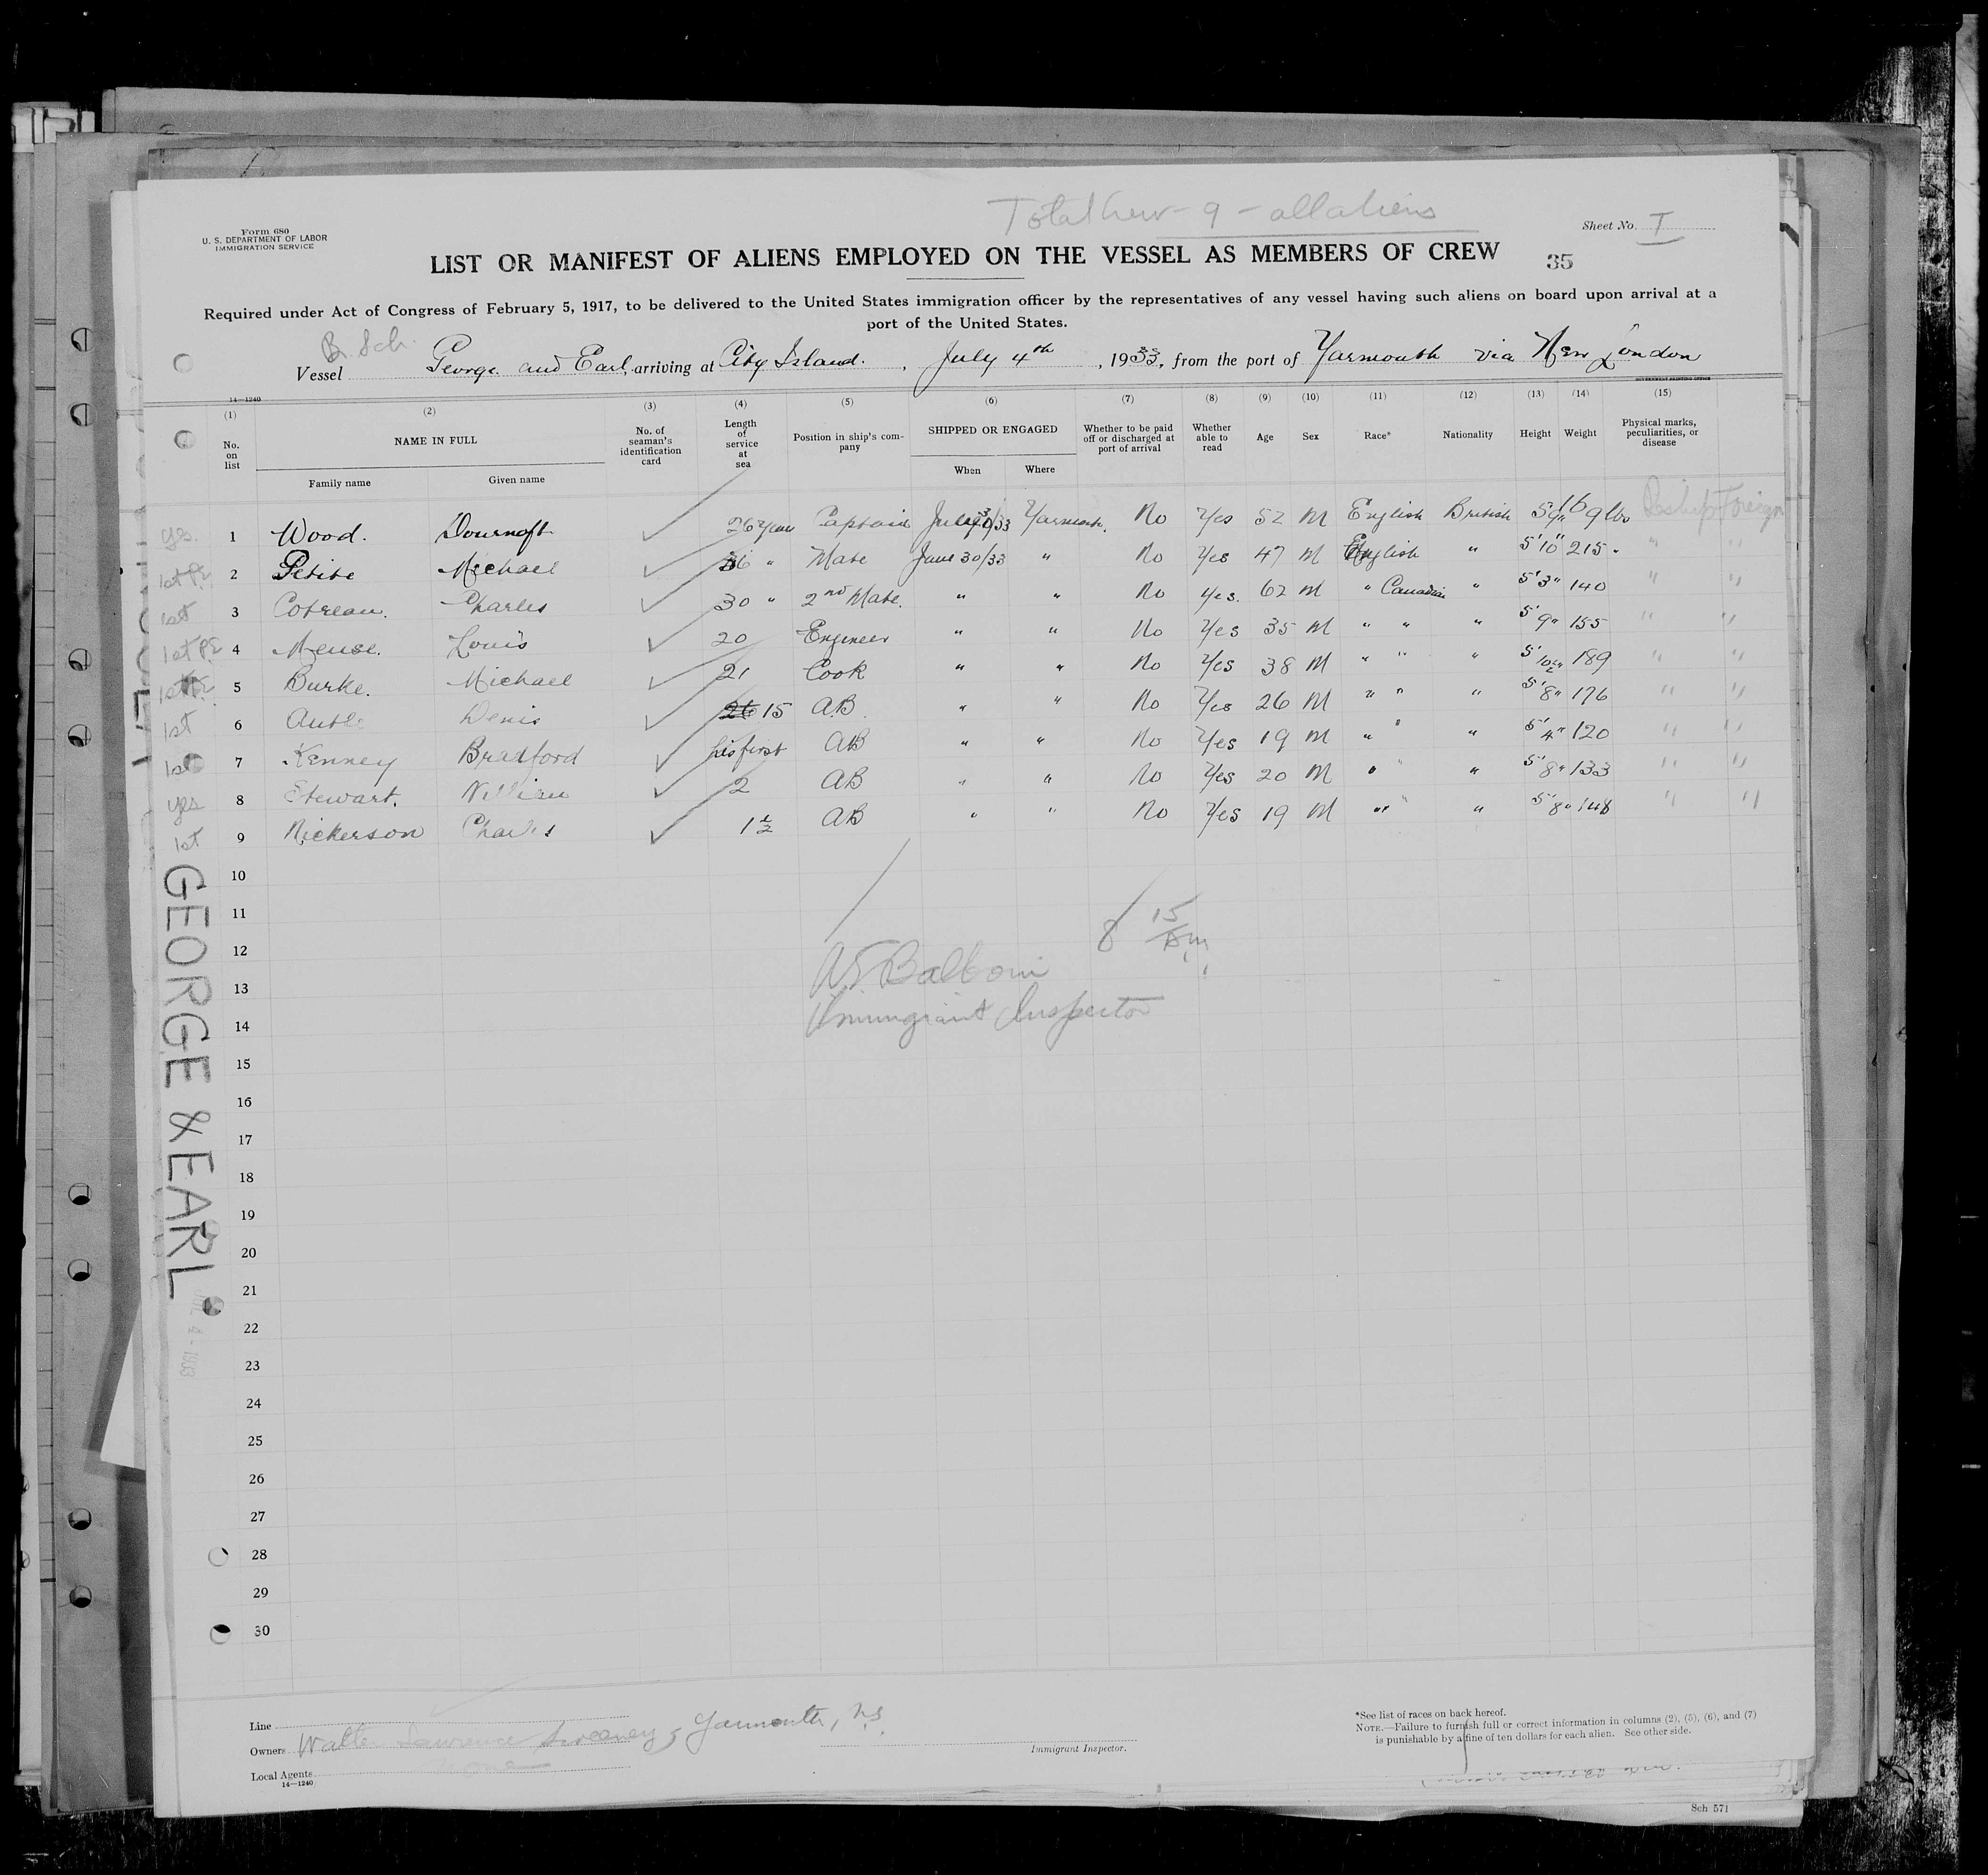 Total Crew - 9 - all aliens
Form 680
U. S. DEPARTMENT OF LABOR
IMMIGRATION SERVICE
Sheet No. I
LIST OR MANIFEST OF ALIENS EMPLOYED ON THE VESSEL AS MEMBERS OF CREW
35
Required under Act of Congress of February 5, 1917, to be delivered to the United States immigration officer by the representatives of any vessel having such aliens on board upon arrival at a
port of the United States.
Br. Sch.
Vessel George and Earl, arriving at City Island. , July 4th , 1933, from the port of Yarmouth via New London
14—1240
GOVERNMENT PRINTING OFFICE
(1) (2) (3) (4) (5) (6) (7) (8) (9) (10) (11) (12) (13) (14) (15)
No. on list NAME IN FULL No. of seaman's identification card Length of service at sea Position in ship's company SHIPPED OR ENGAGED Whether to be paid off or discharged at port of arrival Whether able to read Age Sex Race* Nationality Height Weight Physical marks, peculiarities, or disease
Family name Given name When Where
yes. 1 Wood. 26 Year Captain 30/33 Yarmouth. No Yes 52 M English British 5 9" 169 lbs Foreign
1st 2 Petite Michael 36 " Mate June 30/33 " No Yes 47 M English " 5'10" 215. " "
1st 3 Cotreau. Charles 30 " 2nd Mate. " " No yes. 62 M " Canadian " 5'3" 140 " "
1st 4 Meuse. Louis 20 Engineer " " No Yes 35 M " " " 5'9" 155 " "
1st 5 Burke. Michael 21 Cook " " No Yes 38 M " " " 5'10½" 189 " "
1st 6 Denis 15 A.B. " " No Yes 26 M " " " 5'8" 176 " "
1st 7 Kenney Bradford his first AB " " No Yes 19 M " " " 5'4" 120 " "
yes 8 Stewart. William 2 AB " " No Yes 20 M " " " 5'8" 133 " "
1st 9 Nickerson Charles 1½ AB " " No Yes 19 M " " " 5'8" 148 " "
10
11
12
13
14
15
16
17
18
19
20
21
22
23
24
25
26
27
28
29
30
8 15
Immigrant Inspector
GEORGE & EARL
JUL 4 - 1933
Line
Owners Walter Lawrence Sweeney, Yarmouth, N.S.
Local Agents None
14—1240
Immigrant Inspector.
*See list of races on back hereof.
NOTE.—Failure to furnish full or correct information in columns (2), (5), (6), and (7)
is punishable by a fine of ten dollars for each alien. See other side.
Sch 571